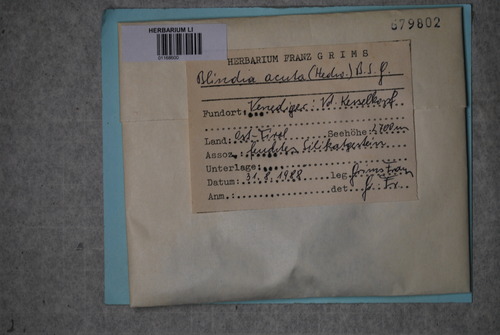 HERBARIUM LI
679802
HERBARIUM FRANZ GRIMS
Blindia acuta (Hedw.) B.S.G.
Fundort: Venediger: Kesselkopf
Land: Ost-Tirol Seehöhe:
Assoz.: feuchtes Silikatgestein
Unterlage:
Datum: 31.8.1988 leg. Grims Franz
Anm.: det. G. Fr.